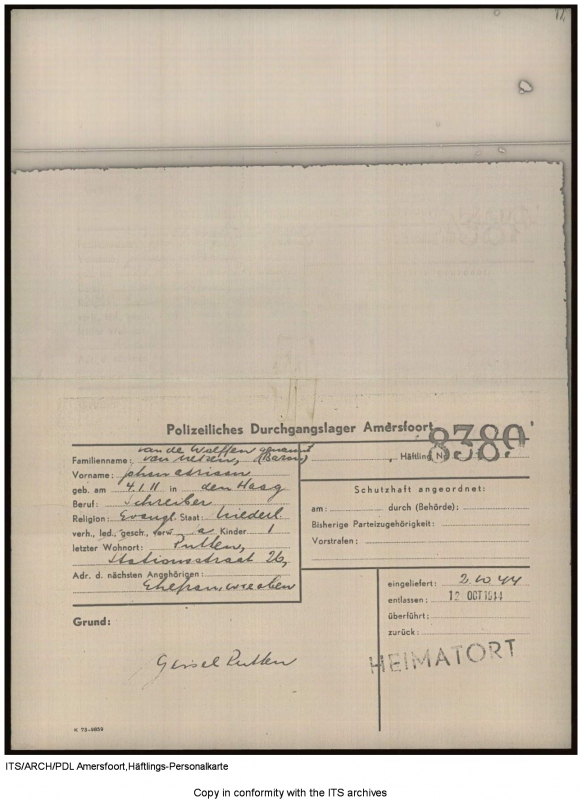 Polizeiliches Durchgangslager Amersfoort
van de Wolffen genannt
Familienname: van (Baron)
Häftling Nr. 8380
Vorname: Johan Adriaan
geb. am 4.1.11 in den Haag
Beruf: Schreiber
Religion: Evangl. Staat: Niederl.
verh., led., gesch., verw. a Kinder 1
letzter Wohnort: Putten,
Stationsstraat 26,
Adr. d. nächsten Angehörigen:
Ehefrau, wie oben
Schutzhaft angeordnet:
am: durch (Behörde):
Bisherige Parteizugehörigkeit:
Vorstrafen:
eingeliefert: 2.10.44
entlassen: 12 OCT 1944
überführt:
zurück:
HEIMATORT
Grund:
Geisel Putten
K 73-9859
ITS/ARCH/PDL Amersfoort,Häftlings-Personalkarte
Copy in conformity with the ITS archives